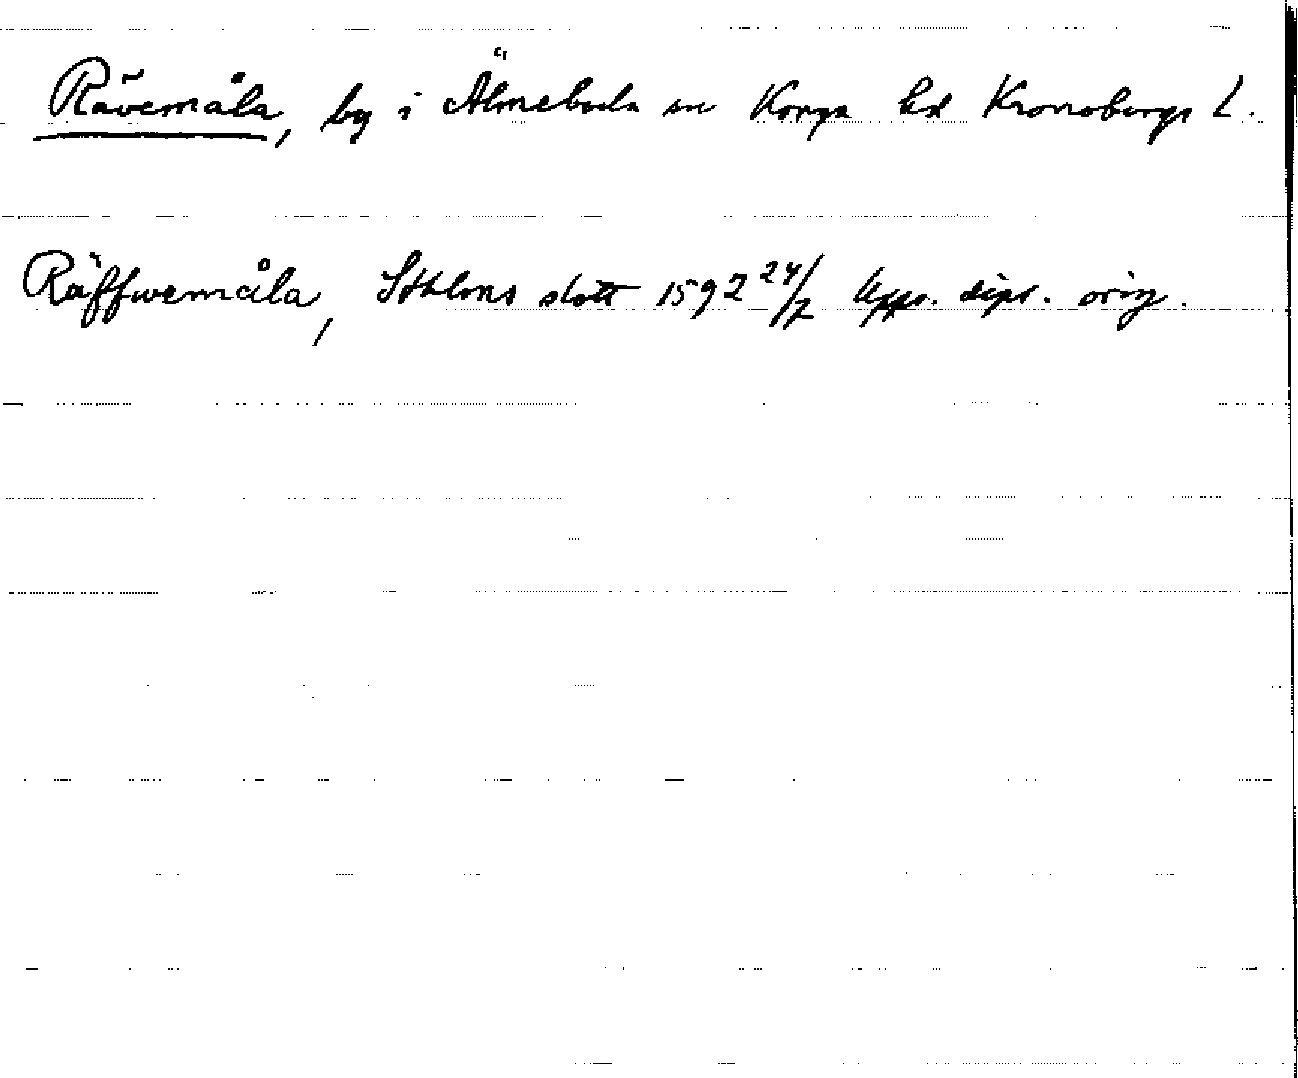 Rävemåla, by i Älmeboda sn Konga hd Kronobergs L.
Räffwemåla, Sthlms slott 1592 24/7 Upps. dipl. orig.